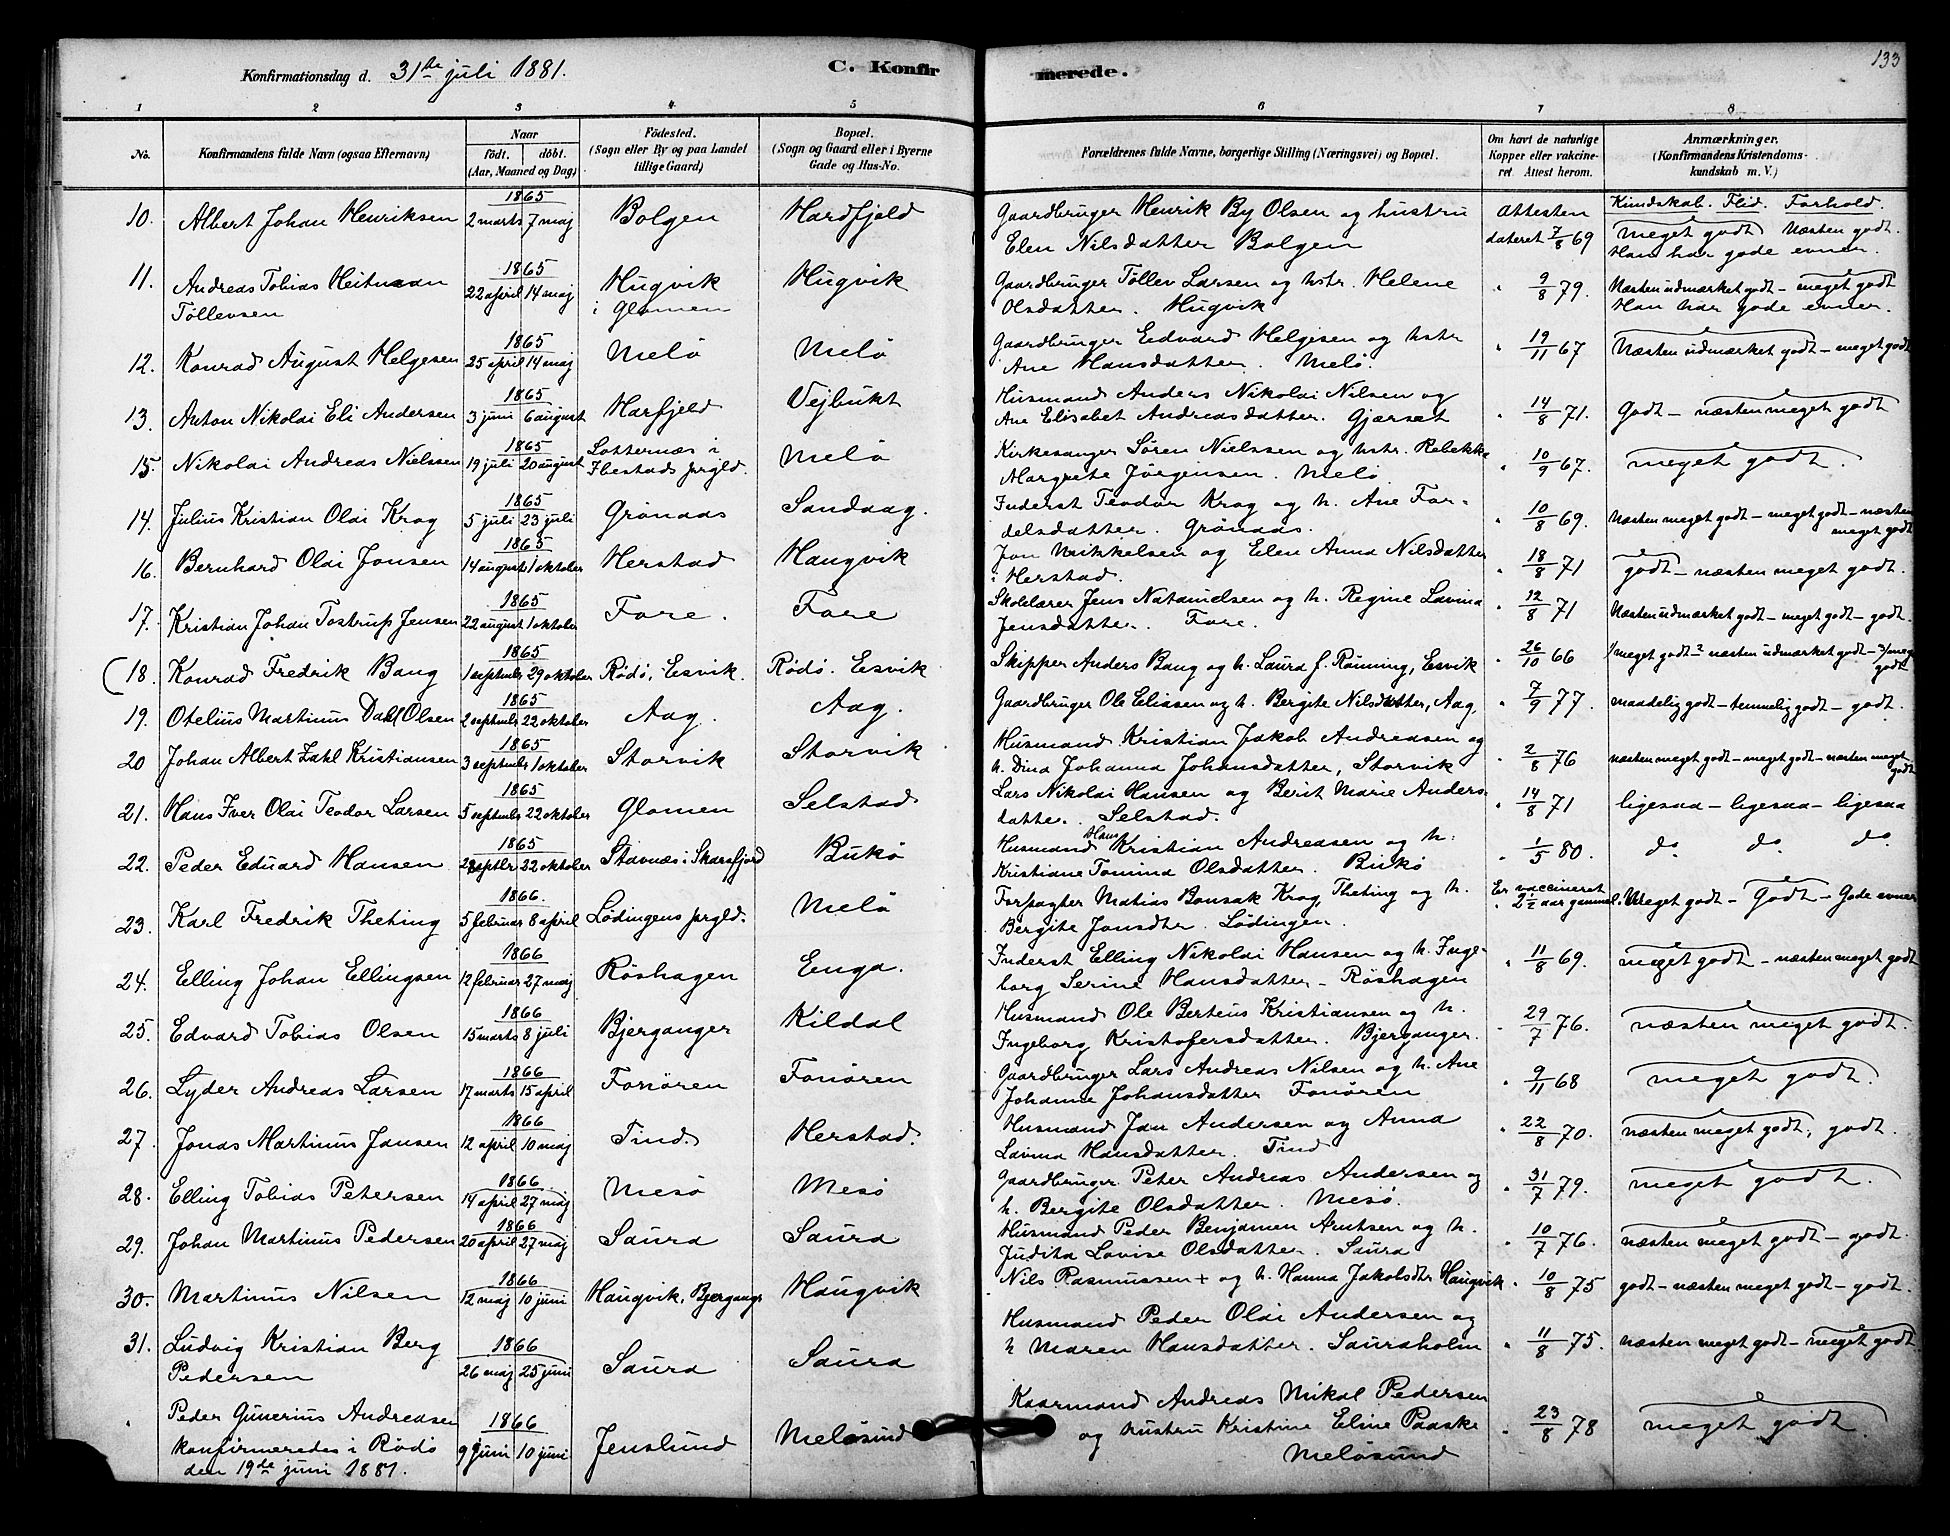 133
Konfirmationsdag d. 31te juli 1881. C. Konfirmerede.
1 2 3 4 5 6 7 8
No. Konfirmandens fulde Navn (ogsaa Efternavn) Naar födt. döbt. (Aar, Maaned og Dag) Födested. (Sogn eller By og paa Landet tillige Gaard) Bopæl. (Sogn og Gaard eller i Byerne Gade og Hus-No. Forældrenes fulde Navne, borgerlige Stilling (Næringsvei) og Bopæl. Om havt de naturlige Kopper eller vakcineret. Attest herom. Anmærkninger. (Konfirmandens Kristendomskundskab m. V.)
Kundskab. Flid. Forhold.
10. Albert Johan Henriksen 1865 2 marts 7 maj Bolgen Hardfjeld Gaardbruger Henrik By Olsen og hustru Elen Nilsdatter Bolgen Attesten dateret 7/8 69 meget godt Næsten godt. Han har gode evner.
11. Andreas Tobias Heitmann Töllevsen 1865 22 april 14 maj Hugvik i Glomen Hugvik Gaardbruger Töllev Larsen og hstr. Helene Olsdatter. Hugvik " 9/8 79. Næsten udmærket godt - meget godt Han har gode evner.
12. Konrad August Helgesen 1865 25 april 14 maj Melö Melö Gaardbruger Edvard Helgesen og hstr Ane Hansdatter. Melö. " 19/11 67 Næsten udmærket godt - meget godt
13. Anton Nikolai Eli Andersen 1865 3 juni 6 august Harfjeld Vejbukt Husmand Anders Nikolai Nilsen og Ane Elisabet Andreasdatter. Gjærset " 14/8 71. Godt - næsten meget godt
15. Nikolai Andreas Nielssen 1865 19 juli 20 august Lotternæs i Ibestads prgld. Melö Kirkesanger Sören Nielssen og hstr. Rebekka Margrete Jörgensen. Melö " 10/9 67. meget godt.
14. Julius Kristian Olai Krog 1865 5 juli 23 juli Grönaas Sandaag. Inderst Teodor Krog og h. Ane Fordelsdatter. Grönaas. " 10/8 69. Næsten meget godt - meget godt - næsten meget godt
16. Bernhard Olai Jonsen 1865 14 august 1 oktober Herstad Haugvik Jon Mikkelsen og Elen Anna Nilsdatter i Herstad. " 18/8 71 godt - næsten meget godt.
17. Kristian Johan Tostrup Jensen 1865 22 august 1 oktober Fore. Fore Skolelærer Jens Natanielsen og h. Regine Lavina Jensdatter. Fore. " 12/8 71 Næsten udmærket godt - meget godt - godt.
(18. Konrad Fredrik Bang 1865 1 septembr 29 oktober Rödö, Esvik. Rödö. Esvik Skipper Anders Bang og h. Laura f. Rönning, Esvik " 26/10 66 meget godt - næsten udmærket godt - meget godt
19. Otelius Martinus Dahl Olsen 1865 2 septembr 22 oktober Aag. Aag. Gaardbruger Ole Eliasen og h. Bergite Nilsdatter, Aag. " 7/9 77. maadelig godt - temmelig godt - godt.
20 Johan Albert Zahl Kristiansen 1865 3 septembr 1 oktober Storvik Storvik Husmand Kristian Jakob Andreasen og h. Dina Johanna Johansdatter, Storvik " 2/8 76 næsten meget godt - meget godt - næsten meget godt
21. Hans Iver Olai Teodor Larsen 1865 5 septembr 22 oktober Glomen Selstad Lars Nikolai Hansen og Berit Marie Andersdatter. Selstad. " 14/8 71 ligesaa - ligesaa - ligesaa
22. Peder Eduard Hansen 1865 septbr 22 oktober Stavnæs i Skarsfjord Bukö Husmand Hans Kristian Andreasen og h. Kristiane Tomina Olsdatter. Bukö " 1/5 80. do do do
23. Karl Fredrik Theting 1866. 5 februar 8 april Lödingens prgld. Melö Forpagter Matias Bonsak Krog Theting og h. Bergite Jonsdtr. Lödingen. Er vaccineret 2½ aar gammel. Meget godt - Godt - Gode evner
24. Elling Johan Ellingsen 1866 12 februar 27 maj Röshagen Enga. Inderst Elling Nikolai Hansen og h. Ingeborg Serine Hansdatter - Röshagen " 11/8 69. meget godt - næsten meget godt
25. Edvard Tobias Olsen 1866 15 marts 8 juli Bjerganger Kildal Husmand Ole Berteus Kristiansen og h. Ingeborg Kristofersdatter. Bjerganger. " 29/7 76. næsten meget godt.
26. Lyder Andreas Larsen 1866 17 marts 15 april Fonören Fonören Gaardbruger Lars Andreas Nilsen og h. Ane Johanne Johansdatter Fonören " 9/11 68 meget godt.
27. Jonas Martinus Jansen 1866 12 april 10 maj Tind. Herstad. Husmand Jan Andersen og Anna Lavina Hansdatter. Tind " 22/8 70. næsten meget godt, godt.
28. Elling Tobias Petersen 1866. 14 april 27 maj Mesö Mesö Gaardbruger Peter Andreas Andersen og h. Bergite Olsdatter. Mesö. " 31/7 79. meget godt.
29. Johan Martinus Pedersen 1866 20 april 27 maj Saura Saura Husmand Peder Benjamen Arntsen og h. Judita Lovise Olsdatter. Saura " 10/7 76. næsten meget godt - godt.
30. Martinus Nilsen 1866 12 maj 10 juni Haugvik, Bjergangr Haugvik Nils Rasmussen + og h. Hanna Jakobsdtr Haugvik " 10/8 75 godt - næsten meget godt - godt.
31. Ludvig Kristian Berg Pedersen 1866 26 maj 25 juni Saura Saura Husmand Peder Olai Andersen og h Maren Hansdatter. Sauraholm " 11/8 75. næsten meget godt - meget godt
" Peder Gunerius Andreasen konfirmeredes i Rödö den 19de juni 1881. 1866 9 juni 10 juni Jenslund Melösund Kaarmand Andreas Mikal Pedersen og hustru Kristine Eline Paaske Melösund " 23/8 78 meget godt.